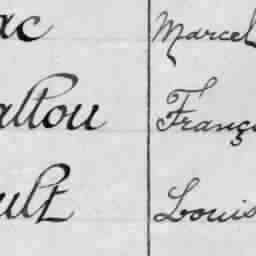 ac Marcel
altou Franço
ult Louis